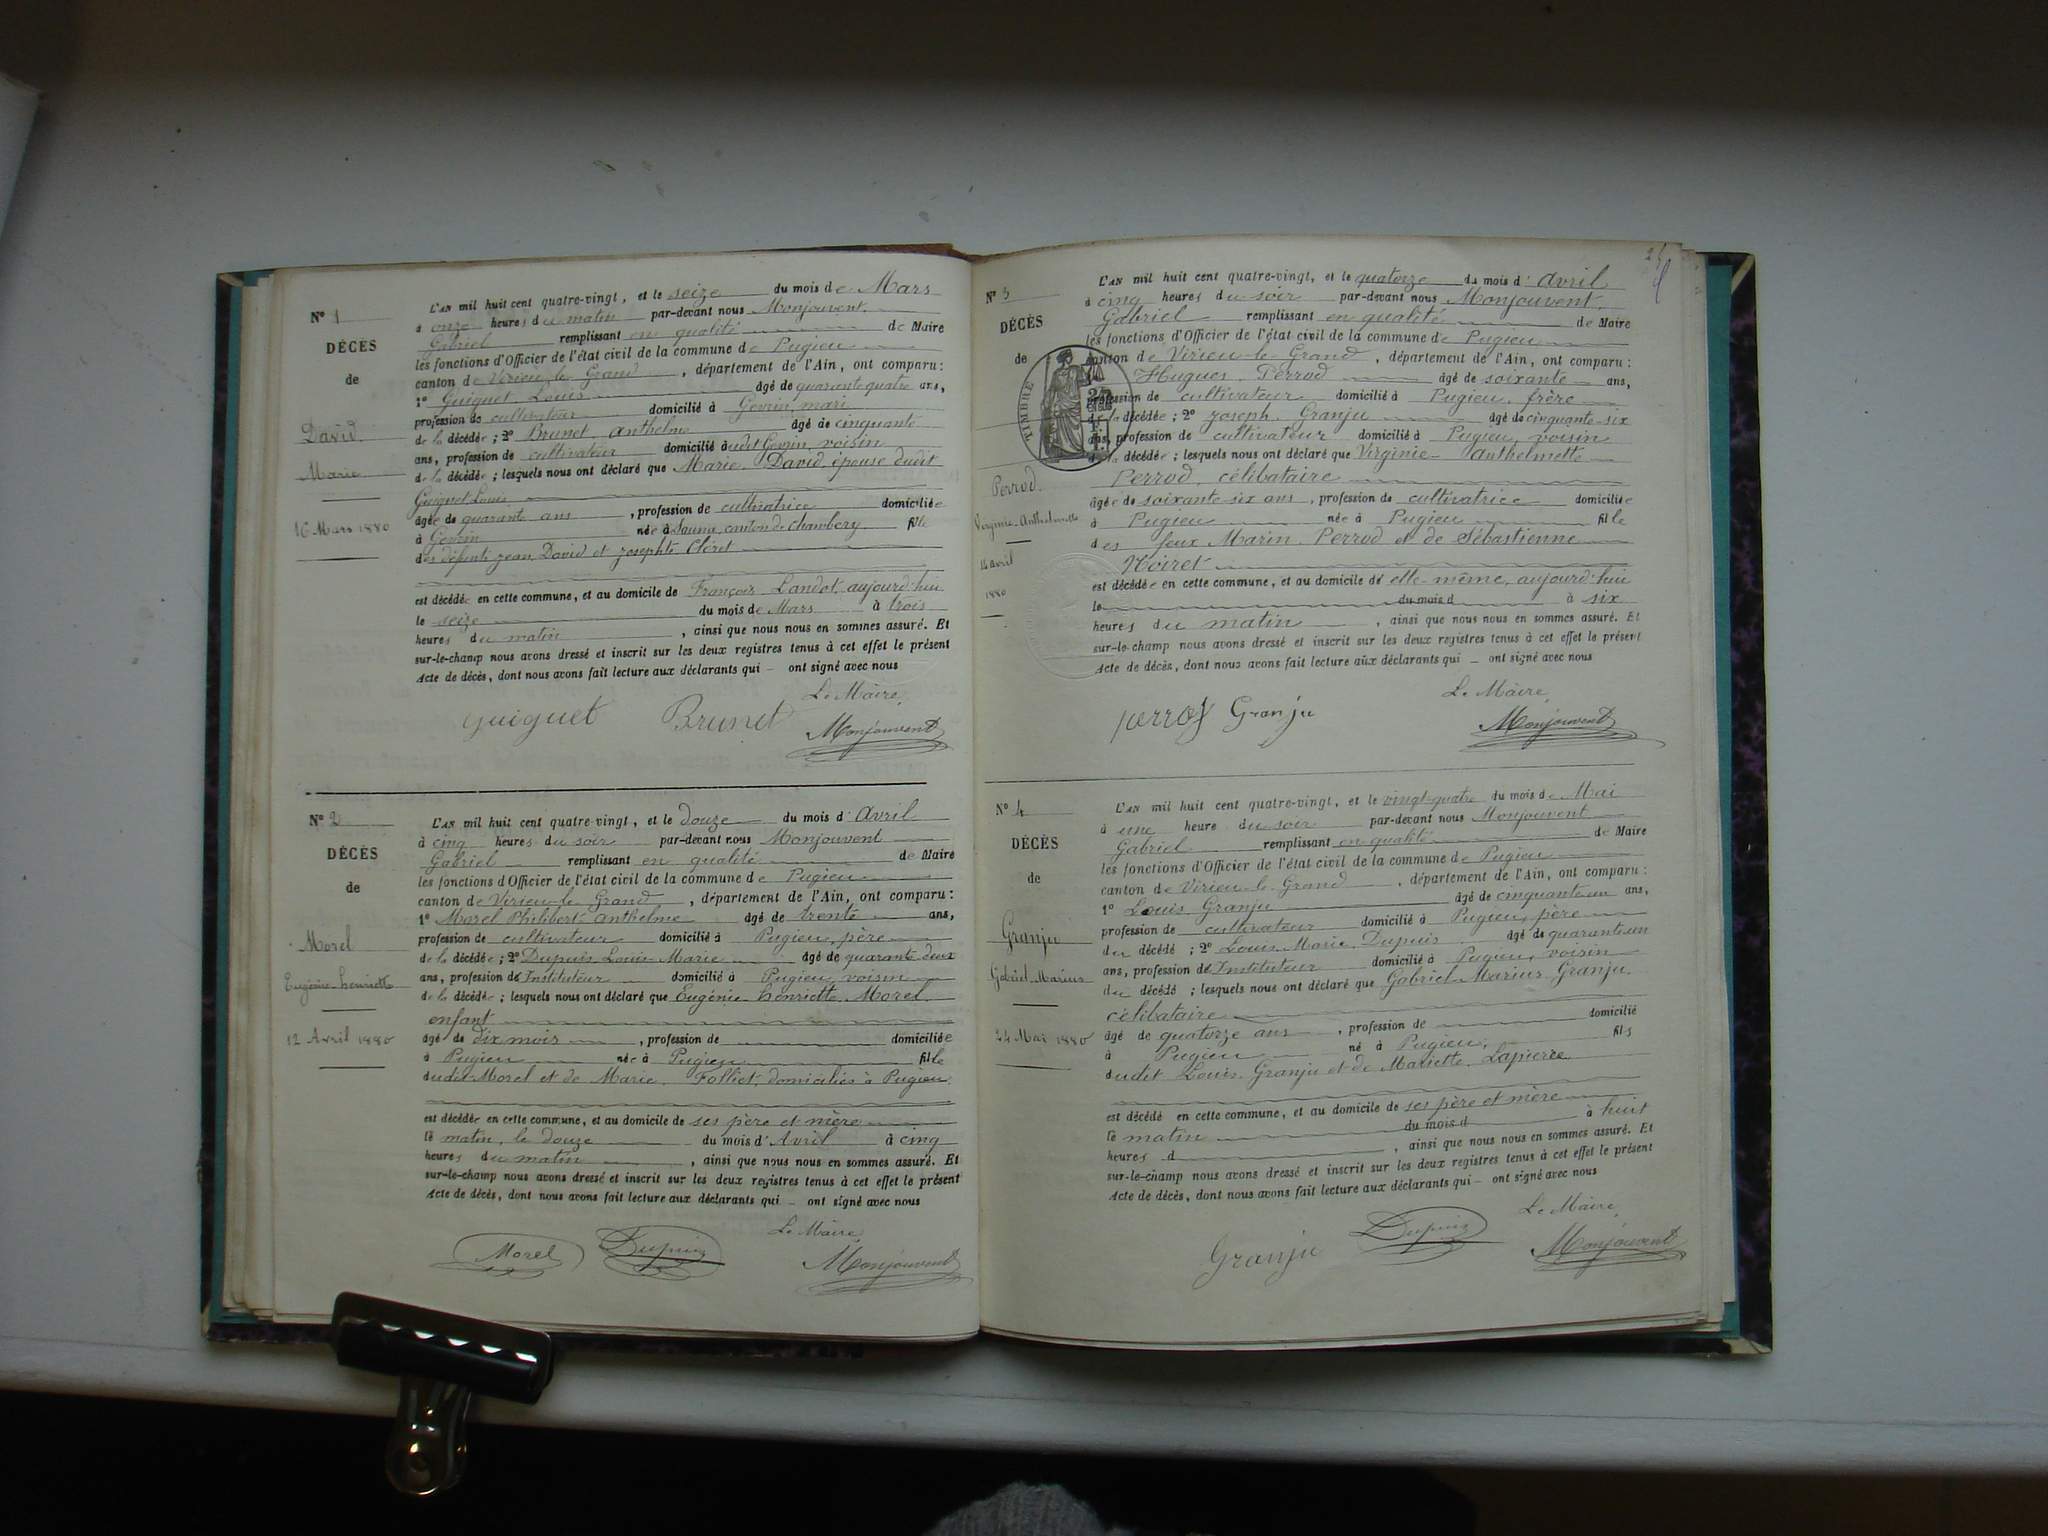 N° 1
DÉCÈS
de
David
Marie
16 Mars 1880
L'AN mil huit cent quatre-vingt, et le seize du mois de Mars
à onze heures du matin par-devant nous Monjouvent
Gabriel remplissant en qualité de Maire
les fonctions d'Officier de l'état civil de la commune de Pugieu
canton de Virieu-le-Grand, département de l'Ain, ont comparu :
1° Guiguet Louis âgé de quarante quatre ans,
profession de cultivateur domicilié à Gevrin, mari
de la décédée ; 2° Brunet Anthelme âgé de cinquante
ans, profession de cultivateur domicilié à udit Gevrin, voisin
de la décédée ; lesquels nous ont déclaré que Marie David, épouse dudit
Guiguet Louis
âgée de quarante ans, profession de cultivatrice domiciliée
à Gevrin née à canton de Chambéry fille
des défunts Jean David et Josephte Cléret
est décédée en cette commune, et au domicile de François Landot, aujourd'hui
le seize du mois de Mars à trois
heures du matin, ainsi que nous nous en sommes assuré. Et
sur-le-champ nous avons dressé et inscrit sur les deux registres tenus à cet effet le présent
Acte de décès, dont nous avons fait lecture aux déclarants qui — ont signé avec nous
Le Maire,
guiguet Brunet Monjouvent
N° 2
DÉCÈS
de
Morel
Eugénie-henriette
12 Avril 1880
L'AN mil huit cent quatre-vingt, et le douze du mois d'Avril
à cinq heures du soir par-devant nous Monjouvent
Gabriel remplissant en qualité de Maire
les fonctions d'Officier de l'état civil de la commune de Pugieu
canton de Virieu-le-Grand, département de l'Ain, ont comparu :
1° Morel Philibert Anthelme âgé de trente ans,
profession de cultivateur domicilié à Pugieu, père
de la décédée ; 2° Dupuis Louis-Marie âgé de quarante deux
ans, profession d'Instituteur domicilié à Pugieu, voisin
de la décédée ; lesquels nous ont déclaré que Eugénie-henriette Morel
enfant
âgé de dix mois, profession de domiciliée
à Pugieu née à Pugieu fille
dudit Morel et de Marie Folliet, domiciliés à Pugieu
est décédée en cette commune, et au domicile de ses père et mère
le matin, le douze du mois d'Avril à cinq
heures du matin, ainsi que nous nous en sommes assuré. Et
sur-le-champ nous avons dressé et inscrit sur les deux registres tenus à cet effet le présent
Acte de décès, dont nous avons fait lecture aux déclarants qui — ont signé avec nous
Le Maire,
Morel Dupuis Monjouvent
N° 3
DÉCÈS
de
TIMBRE
Perrod
Virginie-Anthelmette
14 avril
1880
L'AN mil huit cent quatre-vingt, et le quatorze du mois d'Avril
à cinq heures du soir par-devant nous Monjouvent
Gabriel remplissant en qualité de Maire
les fonctions d'Officier de l'état civil de la commune de Pugieu
canton de Virieu-le-Grand, département de l'Ain, ont comparu :
Hugues Perrod âgé de soixante ans,
profession de cultivateur domicilié à Pugieu, frère
de la décédée ; 2° Joseph Granju âgé de cinquante-six
ans, profession de cultivateur domicilié à Pugieu, voisin
de la décédée ; lesquels nous ont déclaré que Virginie-Anthelmette
Perrod, célibataire
âgée de soixante six ans, profession de cultivatrice domiciliée
à Pugieu née à Pugieu fille
des feux Marin Perrod et de Sébastienne
Noiret
est décédée en cette commune, et au domicile de elle-même, aujourd'hui
le du mois d à six
heures du matin, ainsi que nous nous en sommes assuré. Et
sur-le-champ nous avons dressé et inscrit sur les deux registres tenus à cet effet le présent
Acte de décès, dont nous avons fait lecture aux déclarants qui — ont signé avec nous
Le Maire,
perrod Granju Monjouvent
N° 4
DÉCÈS
de
Granju
Gabriel-Marius
24 Mai 1880
L'AN mil huit cent quatre-vingt, et le vingt-quatre du mois de Mai
à une heure du soir par-devant nous Monjouvent
Gabriel remplissant en qualité de Maire
les fonctions d'Officier de l'état civil de la commune de Pugieu
canton de Virieu-le-Grand, département de l'Ain, ont comparu :
1° Louis Granju âgé de cinquante un ans,
profession de cultivateur domicilié à Pugieu, père
du décédé ; 2° Louis-Marie Dupuis âgé de quarante un
ans, profession d'Instituteur domicilié à Pugieu, voisin
du décédé ; lesquels nous ont déclaré que Gabriel-Marius Granju
célibataire
âgé de quatorze ans, profession de domicilié
à Pugieu né à Pugieu fils
dudit Louis Granju et de Mariette Lapierre
est décédé en cette commune, et au domicile de ses père et mère
le matin du mois d à huit
heures d, ainsi que nous nous en sommes assuré. Et
sur-le-champ nous avons dressé et inscrit sur les deux registres tenus à cet effet le présent
Acte de décès, dont nous avons fait lecture aux déclarants qui — ont signé avec nous
Le Maire,
Granju Dupuis Monjouvent